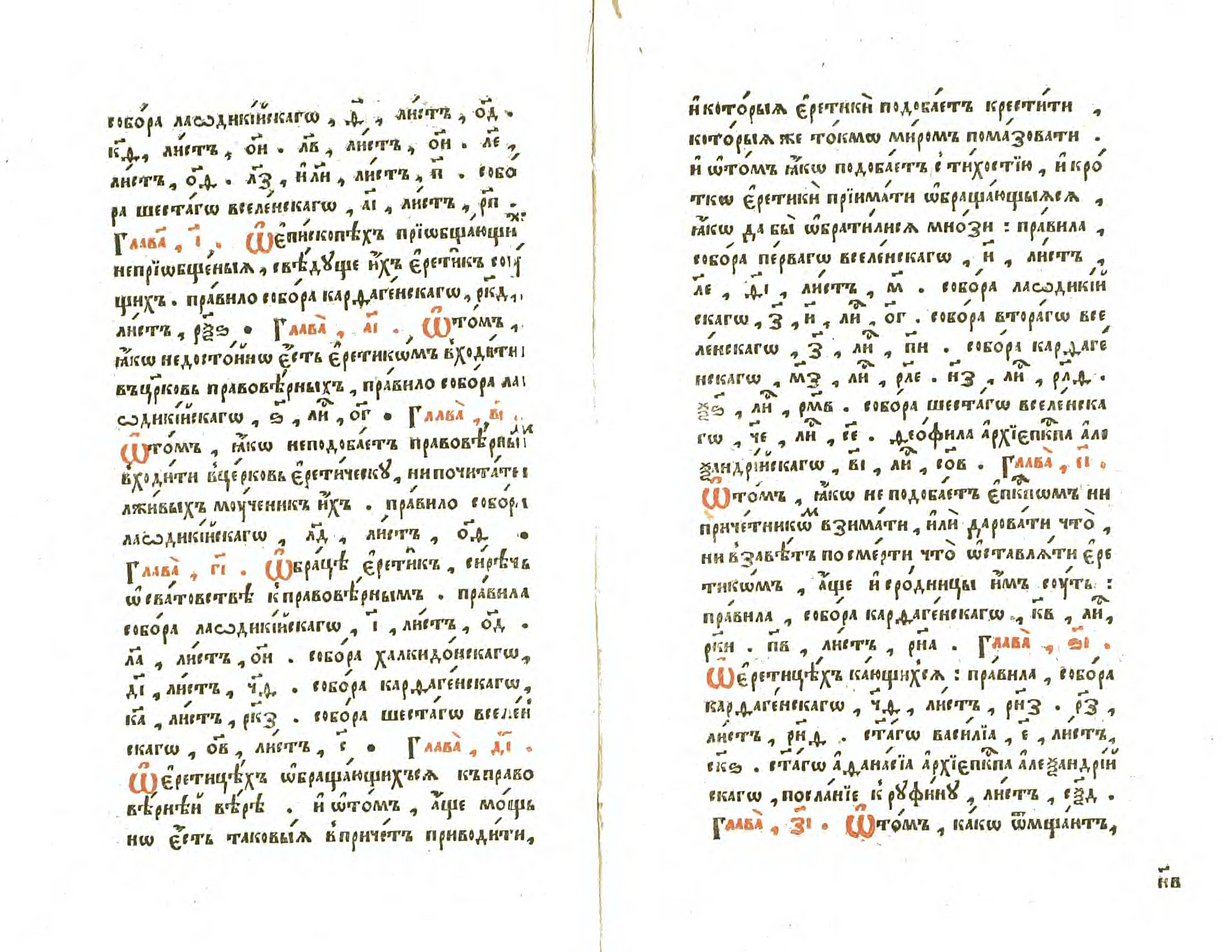 собо́ра лаѡдикі́йскагѡ , ѳ҃ , ли́стъ , о҃д .
к҃ѳ , ли́стъ , о҃и . л҃в , ли́стъ , о҃и . л҃е ,
ли́стъ , о҃ѳ . л҃з , и҆лѝ , ли́стъ , п҃ . собо́
ра шеста́гѡ вселе́нскагѡ , а҃і , ли́стъ , р҃п .
Глава̀ , і҃ . Ѽ є҆пископѣхъ прїѡбща́ющи
непрїѡбще́ныѧ , свѣ́дꙋще и҆́хъ є҆рети̑къ сꙋ́
щихъ . пра́вило собо́ра карѳаге́нскагѡ , р҃кд ,
ли́стъ , р҃ѯѕ . Глава̀ , а҃і . Ѽ то́мъ ,
ꙗ҆́кѡ недосто́йнѡ є҆́сть є҆ретикѡ́мъ входи́ти
въ цр҃ковь правовѣ́рныхъ , пра́вило собо́ра ла
ѡдикі́йскагѡ , ѕ҃ , ли́ , о҃г . Глава̀ , в҃і .
Ѽ то́мъ , ꙗ҆́кѡ неподоба́етъ правовѣ́рны
входи́ти в це́рковь є҆рети́ческꙋ , ни почита́ти
лжи́выхъ мꙋ́ченикъ и҆́хъ . пра́вило собо́ра
лаѡдикі́йскагѡ , л҃д , ли́стъ , о҃ѳ .
Глава̀ , г҃і . Ѽ бра́цѣ є҆рети̑къ , си́рѣчь
ѡ҆ сва́товствѣ к правовѣ́рнымъ . пра́вила
собо́ра лаѡдикі́йскагѡ , і҃ , ли́стъ , о҃д .
л҃а , ли́стъ , о҃и . собо́ра халкидо́нскагѡ ,
д҃і , ли́стъ , ч҃ѳ . собо́ра карѳаге́нскагѡ ,
к҃а , ли́стъ , р҃кз . собо́ра шеста́гѡ вселе́н
скагѡ , о҃в , ли́стъ , с҃ . Глава̀ , д҃і .
Ѽ є҆ретицѣ́хъ ѡ҆браща́ющихъсѧ къ право
вѣ́рнѣй вѣ́рѣ . и҆ ѡ҆ то́мъ , а҆́ще мо́щь
нѡ є҆́сть таковы́ѧ в при́четъ приводи́ти ,
и҆ кото́рыѧ є҆ретикѝ подоба́етъ крести́ти ,
кото́рыѧ же то́кмѡ мѵ́ромъ пома́зовати .
и҆ ѡ҆ то́мъ ꙗ҆́кѡ подоба́етъ с ти́хостїю , и҆ кро́
ткѡ є҆ретикѝ прїима́ти ѡ҆браща́ющыѧсѧ ,
ꙗ҆́кѡ да бы̀ ѡ҆брати́лисѧ мно́зи : пра́вила ,
собо́ра пе́рвагѡ вселе́нскагѡ , и҃ , ли́стъ ,
л҃е , ѳ҃і , ли́стъ , м҃ . собо́ра лаѡдикі́й
скагѡ , з҃ , и҃ , ли́ , о҃г . собо́ра втора́гѡ все
ле́нскагѡ , з҃ , ли́ , п҃и . собо́ра карѳаге́
нскагѡ , м҃з , ли́ , р҃ле . н҃з , ли́ , р҃лѳ .
ѯ҃ѕ , ли́ , р҃мв . собо́ра шеста́гѡ вселе́нска
гѡ , ч҃е , ли́ , с҃е . ѳео́фила а҆рхїепкⷭ҇па але
ѯандрі́йскагѡ , в҃і , ли́ , с҃ов . Глава̀ , є҃і .
Ѽ то́мъ , ꙗ҆́кѡ не подоба́етъ є҆пкⷭ҇пѡмъ ни
приче́тникѡⷨ взима́ти , и҆лѝ дарова́ти что̀ ,
ни в завѣ́тъ по сме́рти что̀ ѡ҆ставлѧ́ти є҆ре
тикѡ́мъ , а҆́ще и҆ сро́дницы и҆̀мъ сꙋ́ть :
пра́вила , собо́ра карѳаге́нскагѡ , к҃в , ли́ ,
р҃кн . п҃в , ли́стъ , р҃на . Глава̀ , ѕ҃і .
Ѽ є҆ретицѣ́хъ ка́ющихсѧ : пра́вила , собо́ра
карѳаге́нскагѡ , ч҃ѳ , ли́стъ , р҃нз . р҃з ,
ли́стъ , р҃нѳ . ст҃а́гѡ васи́лїа , є҃ , ли́стъ ,
с҃кѕ . ст҃а́гѡ а҆ѳана́сїа а҆рхїепкⷭ҇па алеѯандрі́й
скагѡ , посла́нїе к рꙋфи́нꙋ , ли́стъ , с҃ѯд .
Глава̀ , з҃і . Ѽ то́мъ , ка́кѡ ѿмща́итъ ,
к҃в